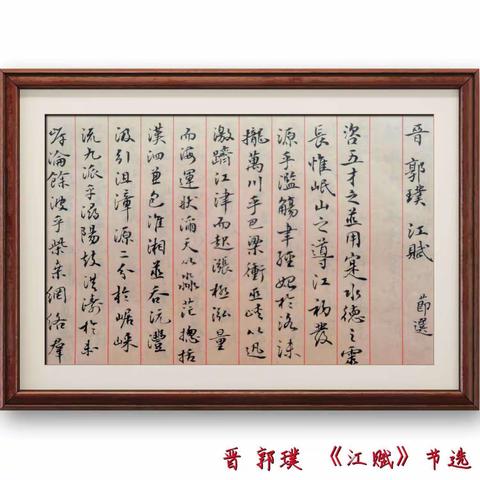 晋 郭璞 江賦 節選
咨五才之並用寔水德之靈
長惟岷山之導江初發
源乎濫觴聿經始於洛沬
攏萬川乎巴梁衝巫峽以迅
激躋江津而起漲極泓量
而海運狀滔天以淼茫揔括
漢泗兼包淮湘並吞沅澧
汲引沮漳源二分於崌崍
流九派乎潯陽鼓洪濤於赤
岸淪餘波乎柴桑網絡羣
晋 郭璞 《江赋》节选